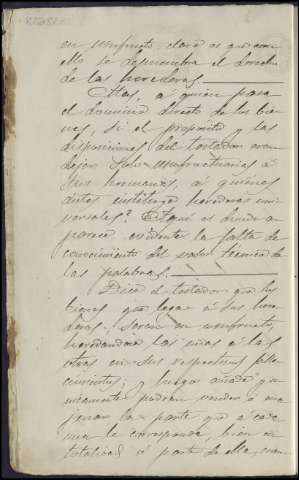 en usufructo, claro es que con
ello se desmembra el derecho
de las herederas.
Mas, á quien pasa
el dominio directo de los bie-
nes, si el propósito y las
disposiciones del testador eran
dejar solo usufructuarias á
sus hermanas, á quienes
antes instituye herederas uni-
versales? Aquí es donde a-
parece evidente la falta de
conocimiento del valor técnico de
las palabras.
Dice el testador que los
bienes que lega á sus here-
deras, serán en usufructo,
heredándose las unas á las
otras en sus respectivos falle-
cimientos; y luego añade que
únicamente podrán vender ó ena-
jenar la parte que á cada
una le corresponda, bien en
totalidad ó parte de ella, cuan